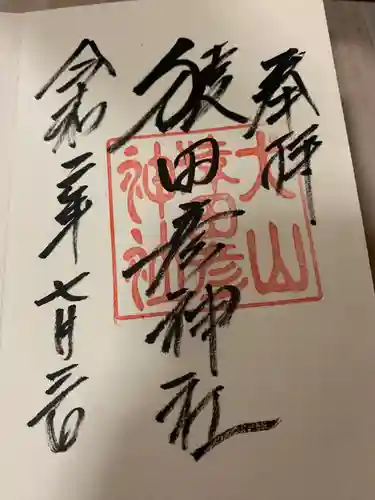 奉拝
猿田彦神社
令和二年七月二日
大山
猿田彦
神社